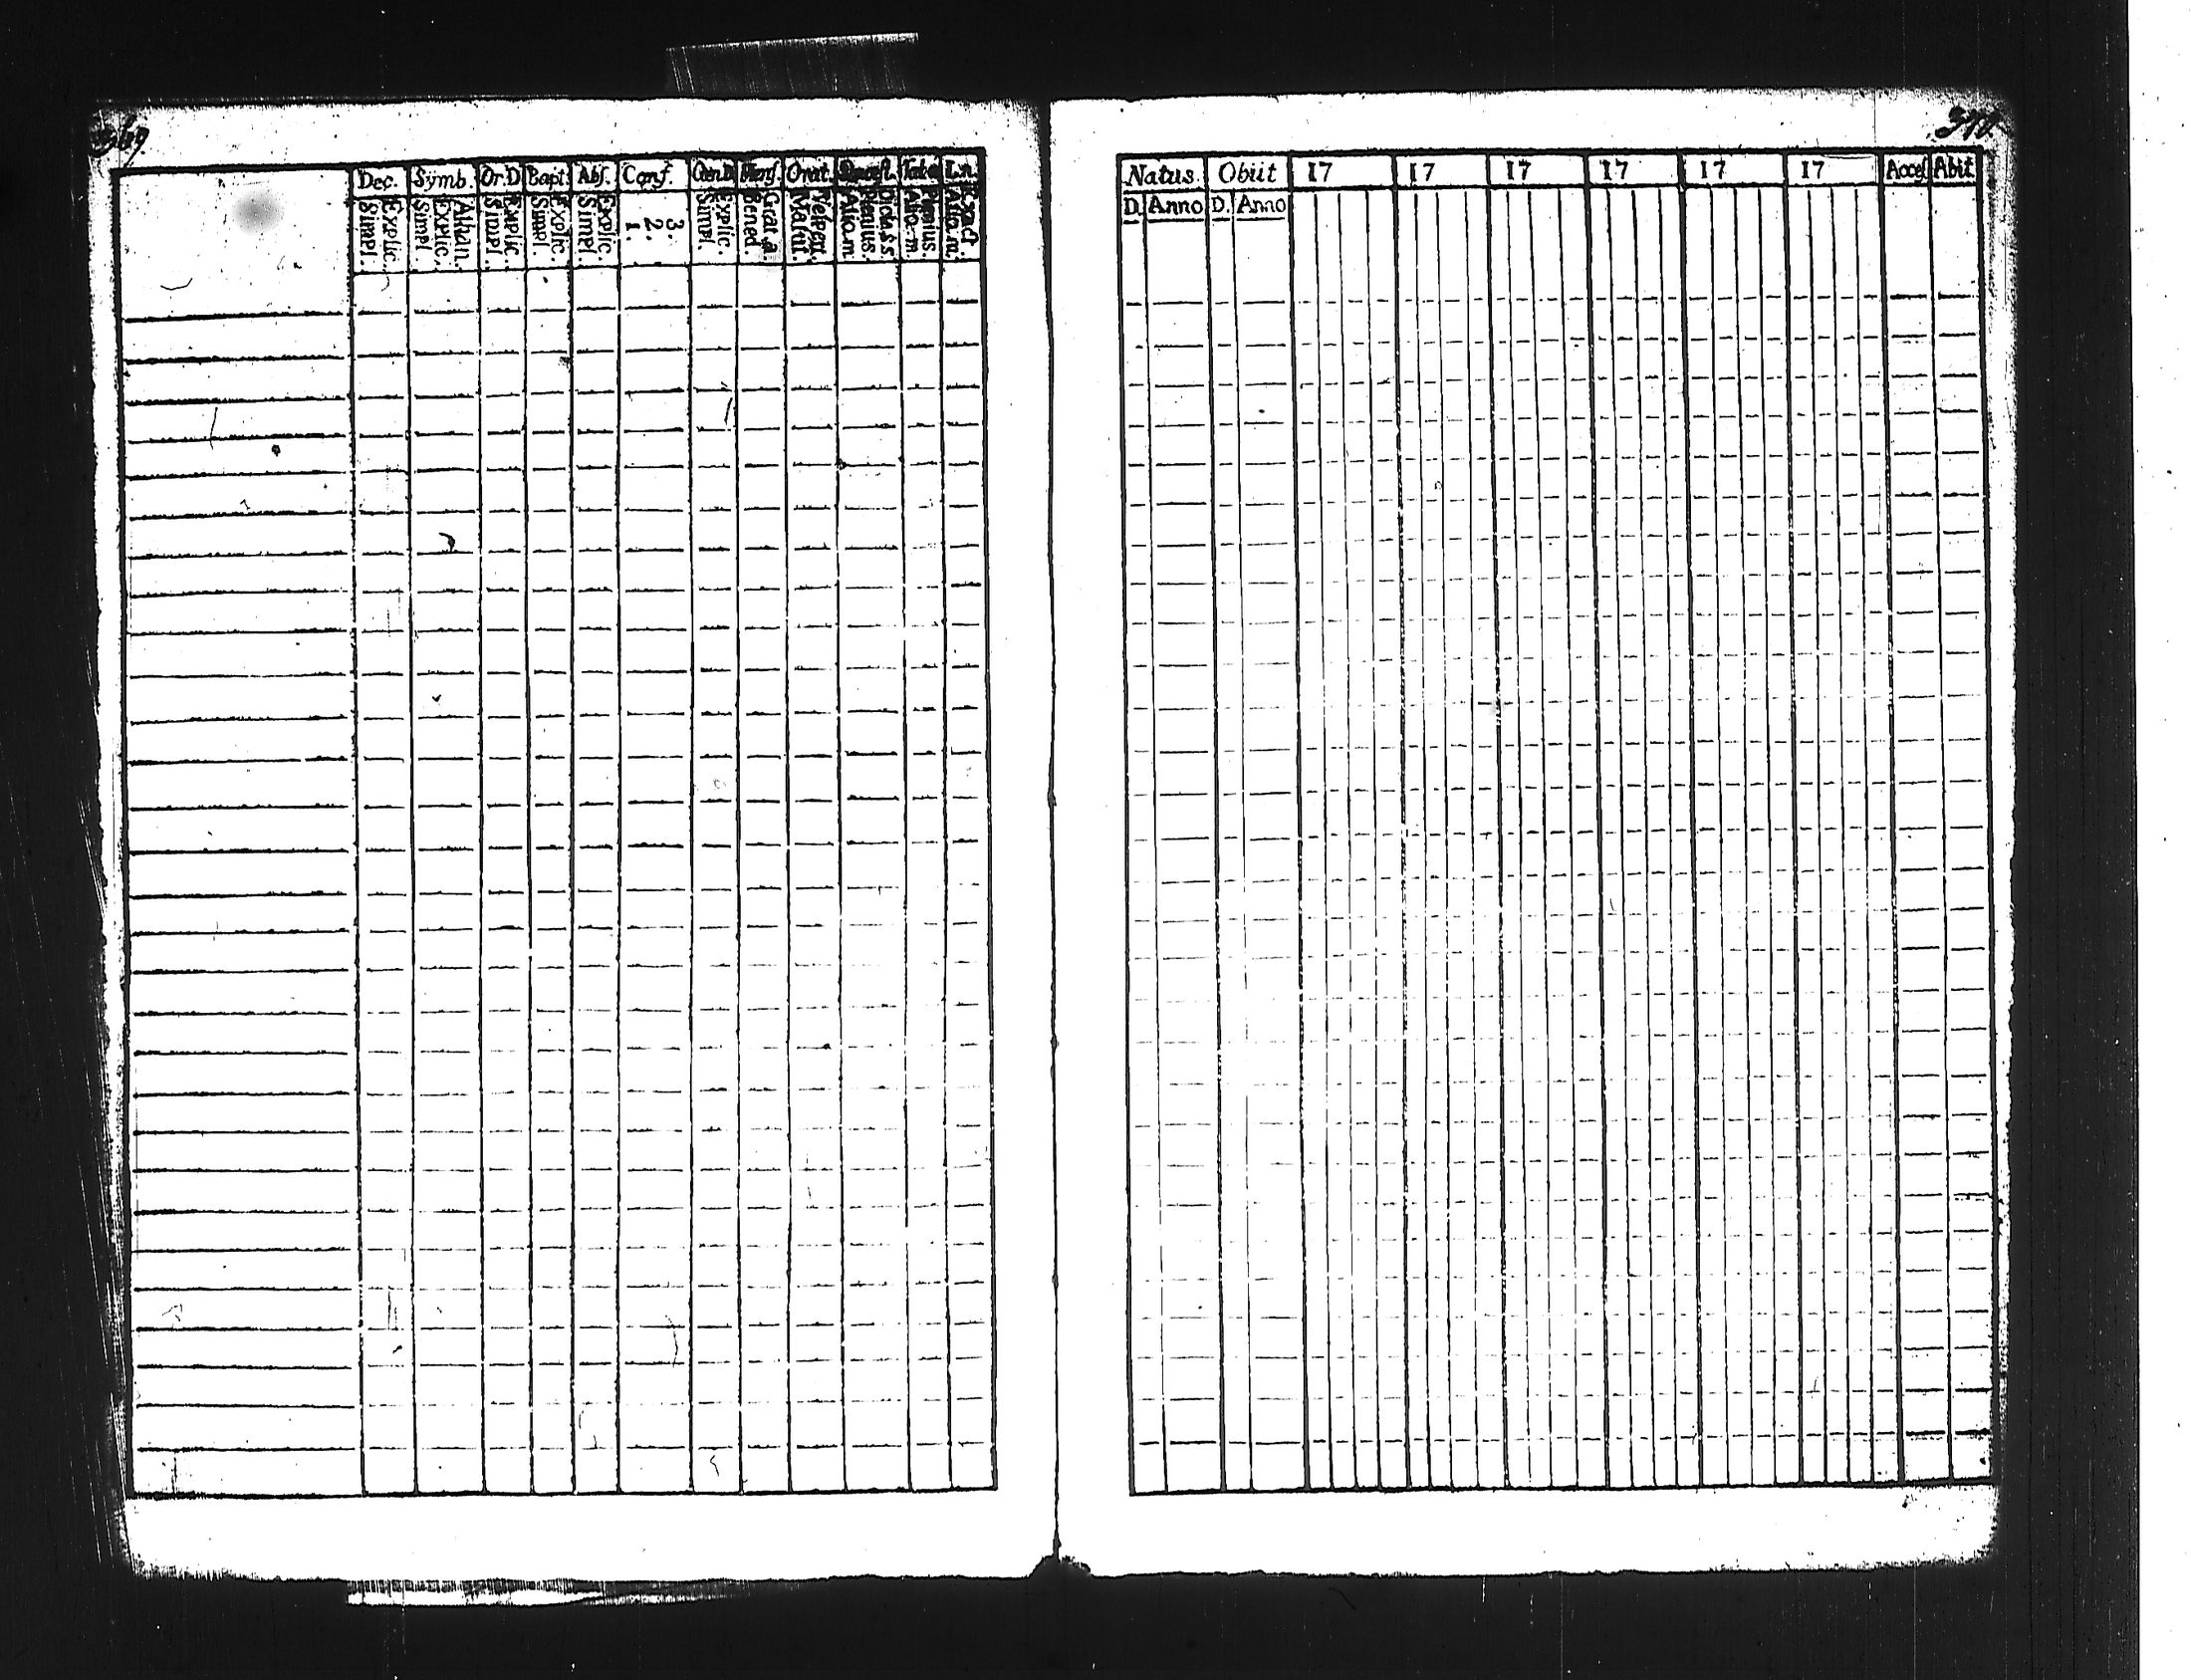 369
Dec. Symb. Or.D Bapt. Abs. Conf. Cœn.D Mens. Orat. Quæst. Tab.œ L.n.
Explic. Simpl.
Athan. Explic. Simpl.
Explic. Simpl.
Explic. Simpl.
Explic. Simpl.
3. 2. 1.
Explic. Simpl.
Grat. a. Bened.
Vesper. Matut.
Dicta s.s. Plenius. Alio. m
Plenius. Aliq. m
Exact. Aliq. m.
370
Natus. Obiit 17 17 17 17 17 17 Acces Abit
D. Anno D. Anno